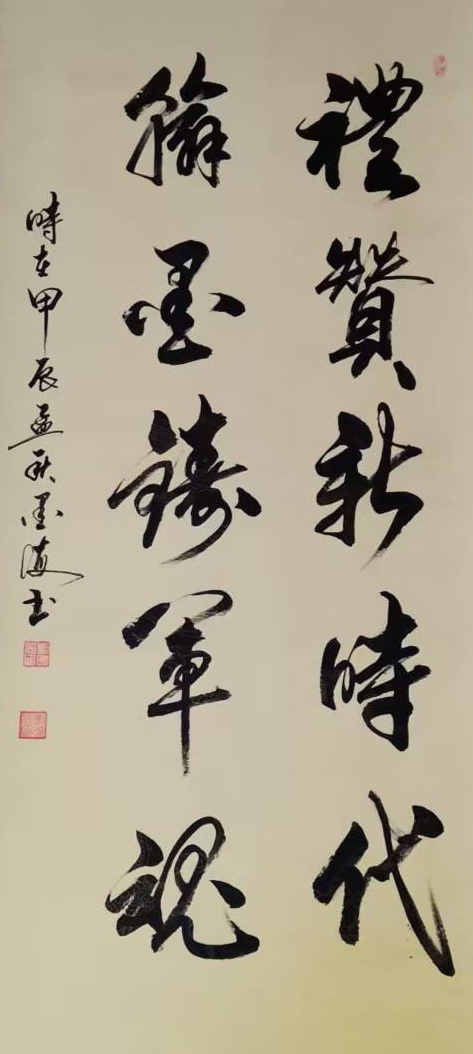 禮贊新時代
翰墨鑄軍魂
時在甲辰孟秋墨海书